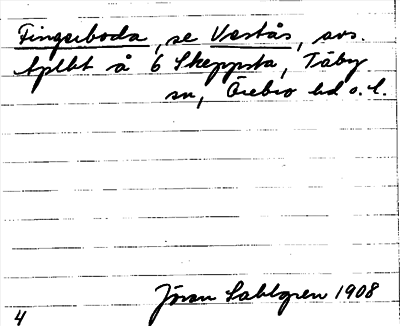 Fingerboda, se Vastås, avs.
lplht å 6 Skeppsta, Täby
sn, Örebro hd o. l.
Jöran Sahlgren 1908
4